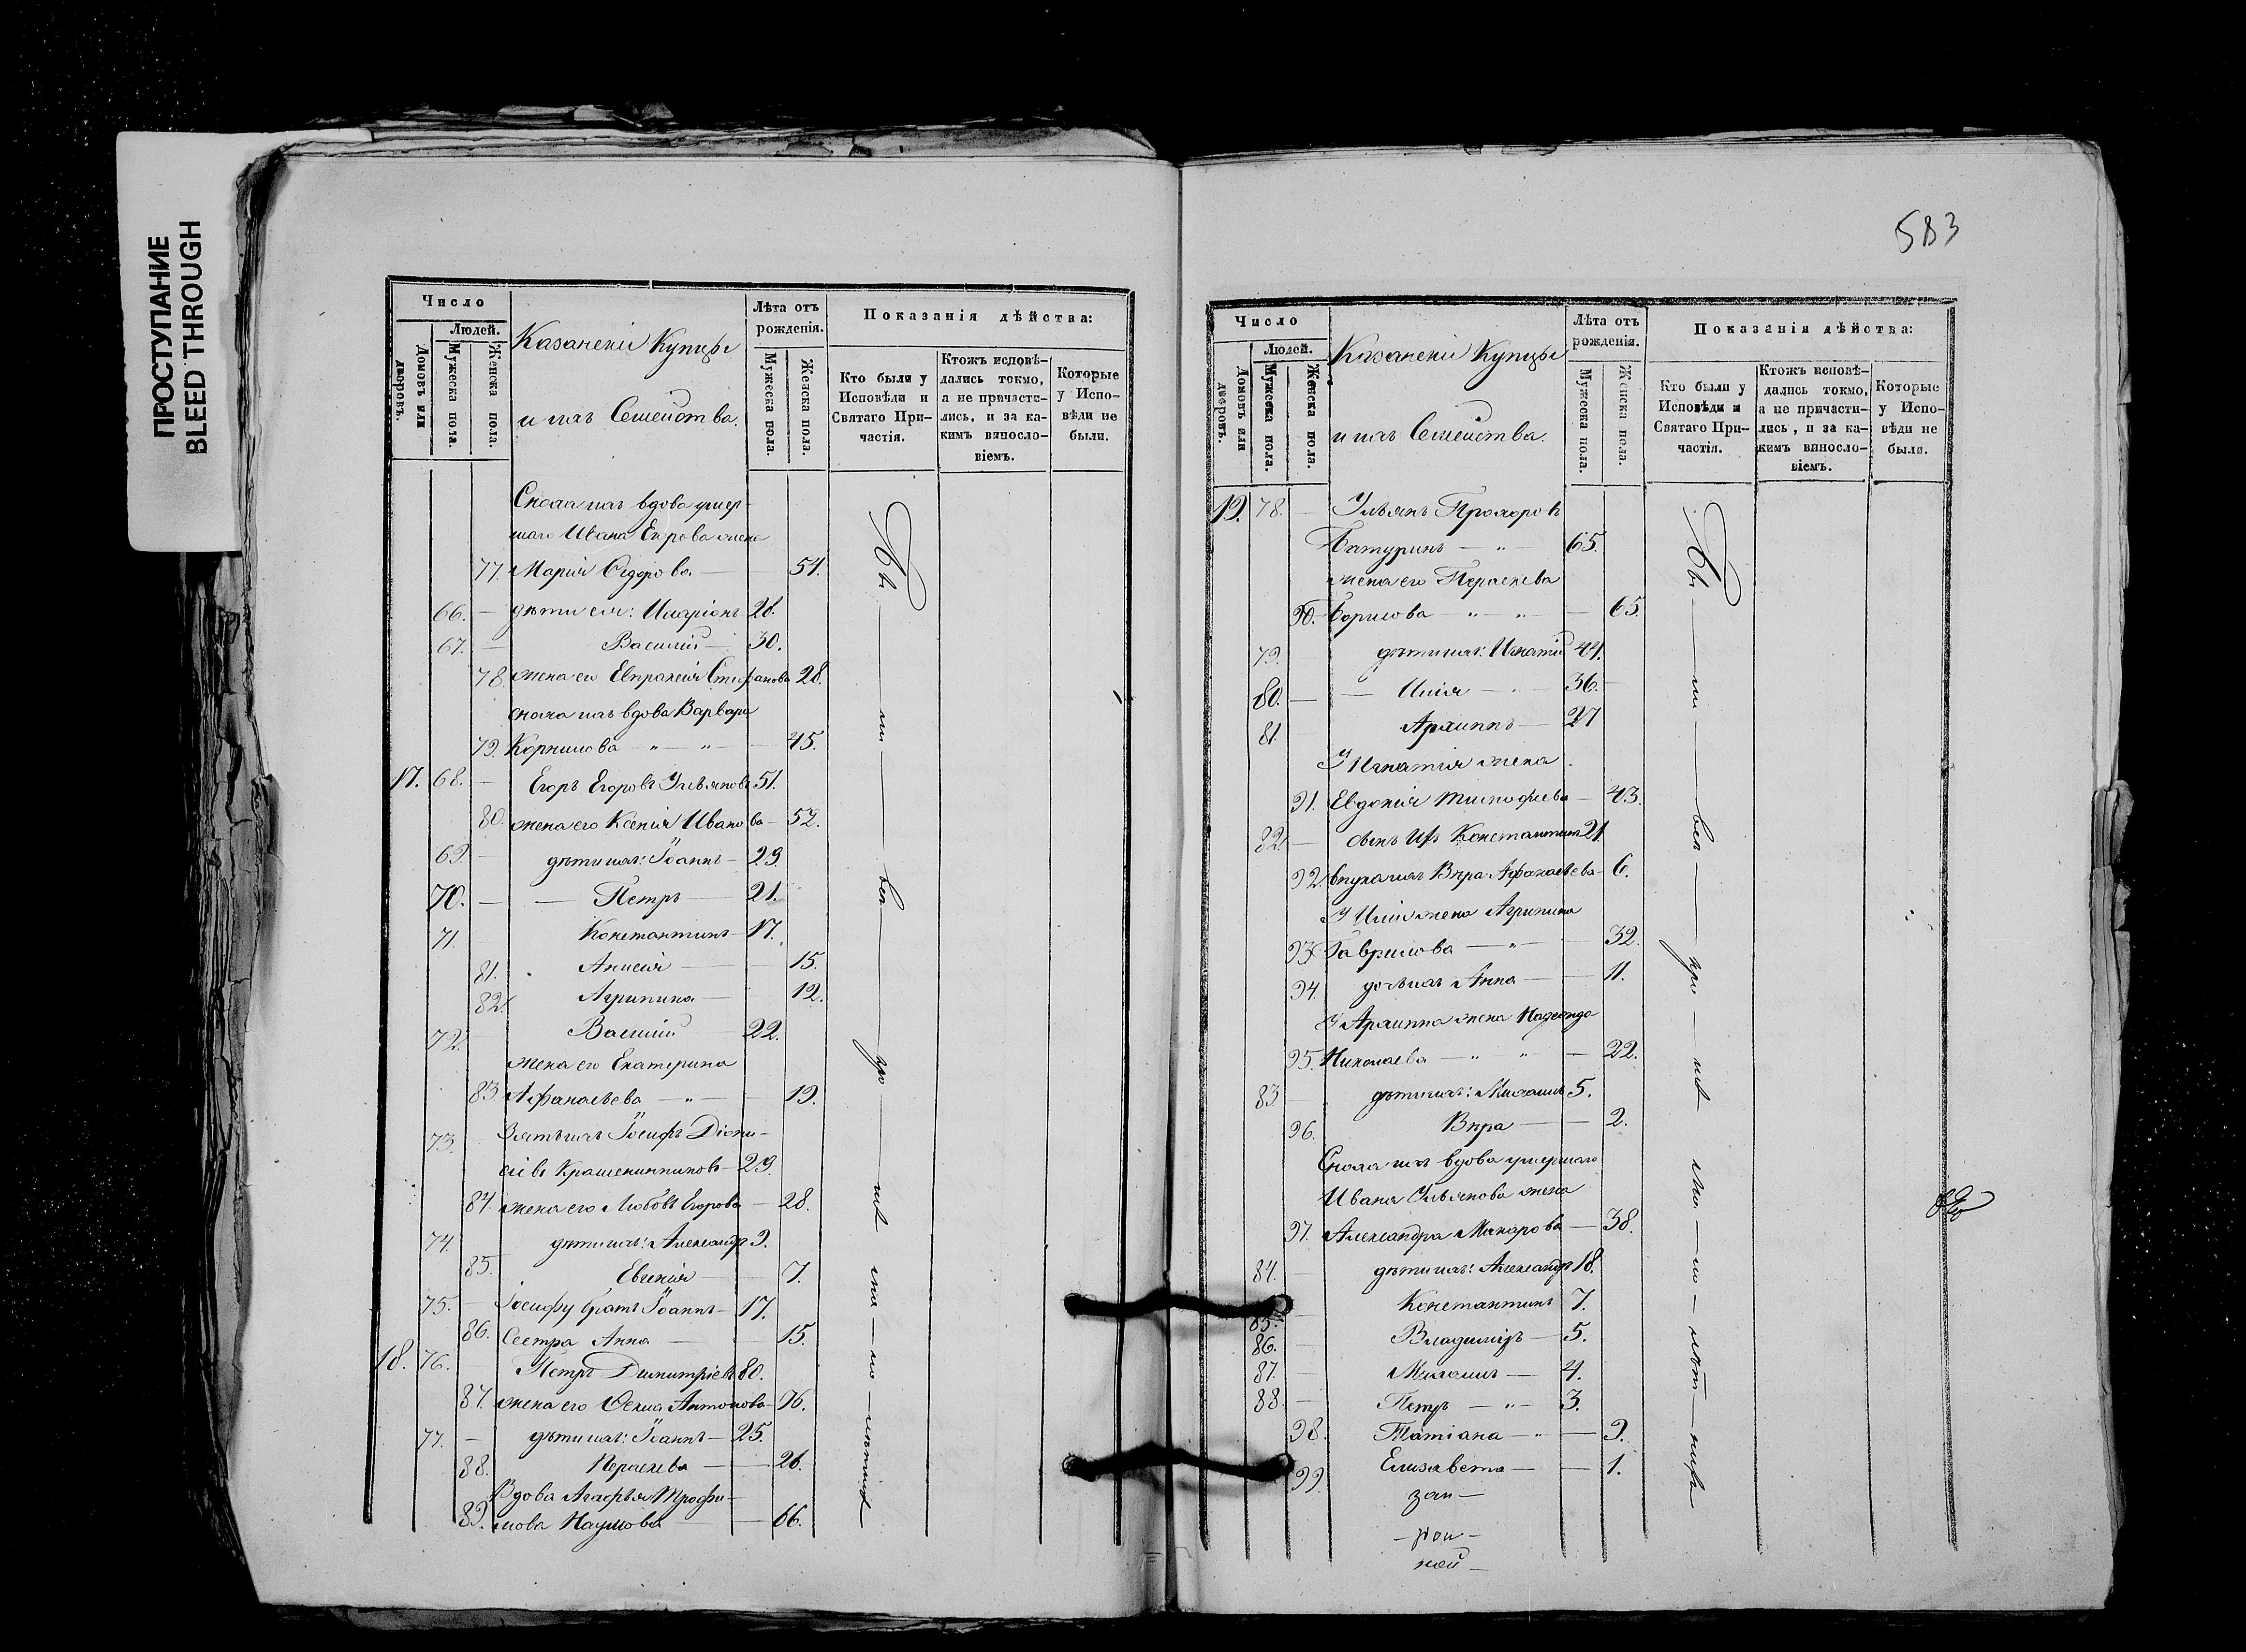 ПРОСТУПАНИЕ
BLEED THROUGH
583
Число
Людей.
Домовъ или дворовъ.
Мужеска пола.
Женска пола.
Казанскіи Купцы
и ихъ Семейства.
Лѣта отъ рожденія.
Мужеска пола.
Женска пола.
Показанія дѣйства:
Кто были у Исповѣди и Святаго Причастія.
Ктожъ исповѣдались токмо, а не причастились, и за какимъ винословіемъ.
Которые у Исповѣди не были.
Сноха ихъ вдова умер-
шаго Ивана Егорова жена
77. Марія Сидорова — 51.
66. — дѣти ея: Иларіонъ 28.
67. — Василій — 30.
78. жена его Евпраксія Стефанова 28.
сноха ихъ вдова Варвара
79. Корнилова — " — " — 45.
17. 68. — Егоръ Егоровъ Ульяновъ 51.
80. жена его Ксенія Иванова — 52.
69. — дѣти ихъ: Іоаннъ — 29.
70. — — Петръ — 21.
71. Константинъ — 17.
81. Анисія — 15.
82. Агрипина — 12.
72. — Василій — 22.
жена его Екатерина
83. Афанасьева — " — 19.
73. Зять ихъ Іосифъ Діони-
сіевъ Крашенинниковъ — 29.
84. жена его Любовь Егорова — 28.
74. дѣти ихъ: Александръ 9.
85. Евгенія — 7.
75. — Іосифу братъ Іоаннъ — 17.
86. Сестра Анна — 15.
18. 76. — Петръ Димитріевъ 80.
87. жена его Ѳекла Антонова — 76.
77. — дѣти ихъ: Іоаннъ — 25.
88. Параскева — 26.
Вдова Агафья Трофи-
89. мова Наумова — 66.
Число
Людей.
Домовъ или дворовъ.
Мужеска пола.
Женска пола.
Казанскіи Купцы
и ихъ Семейства.
Лѣта отъ рожденія.
Мужеска пола.
Женска пола.
Показанія дѣйства:
Кто были у Исповѣди и Святаго Причастія.
Ктожъ исповѣдались токмо, а не причастились, и за какимъ винословіемъ.
Которые у Исповѣди не были.
19. 78. — Ульянъ Прохоровъ
Батуринъ — " — 65.
жена его Параскева
90. Борисова — " — " — 65.
79. дѣти ихъ: Игнатій 44.
80. — — Илія — " — 36.
81. Архиппъ — 27
У Игнатія жена
91. Евдокія Тимофеева — 43.
82. — сынъ ихъ Константинъ 21.
92. внука ихъ Вѣра Афанасьева — 6.
У Иліи жена Агрипина
93. Гаврилова — " — 32.
94. дочь ихъ Анна — 11.
У Архиппа жена Надежда
95. Николаева — " — " — 22.
83. дѣти ихъ: Михаилъ 5.
96. Вѣра — 2.
Сноха ихъ вдова умершаго
Ивана Ульянова жена
97. Александра Макарова — 38.
84. — дѣти ихъ: Александръ 18.
85. — Константинъ 7.
86. Владиміръ — 5.
87. — Михаилъ — 4.
88. — Петръ — " — 3.
98. Татіана — " — 9.
99. Елисавета — 1.